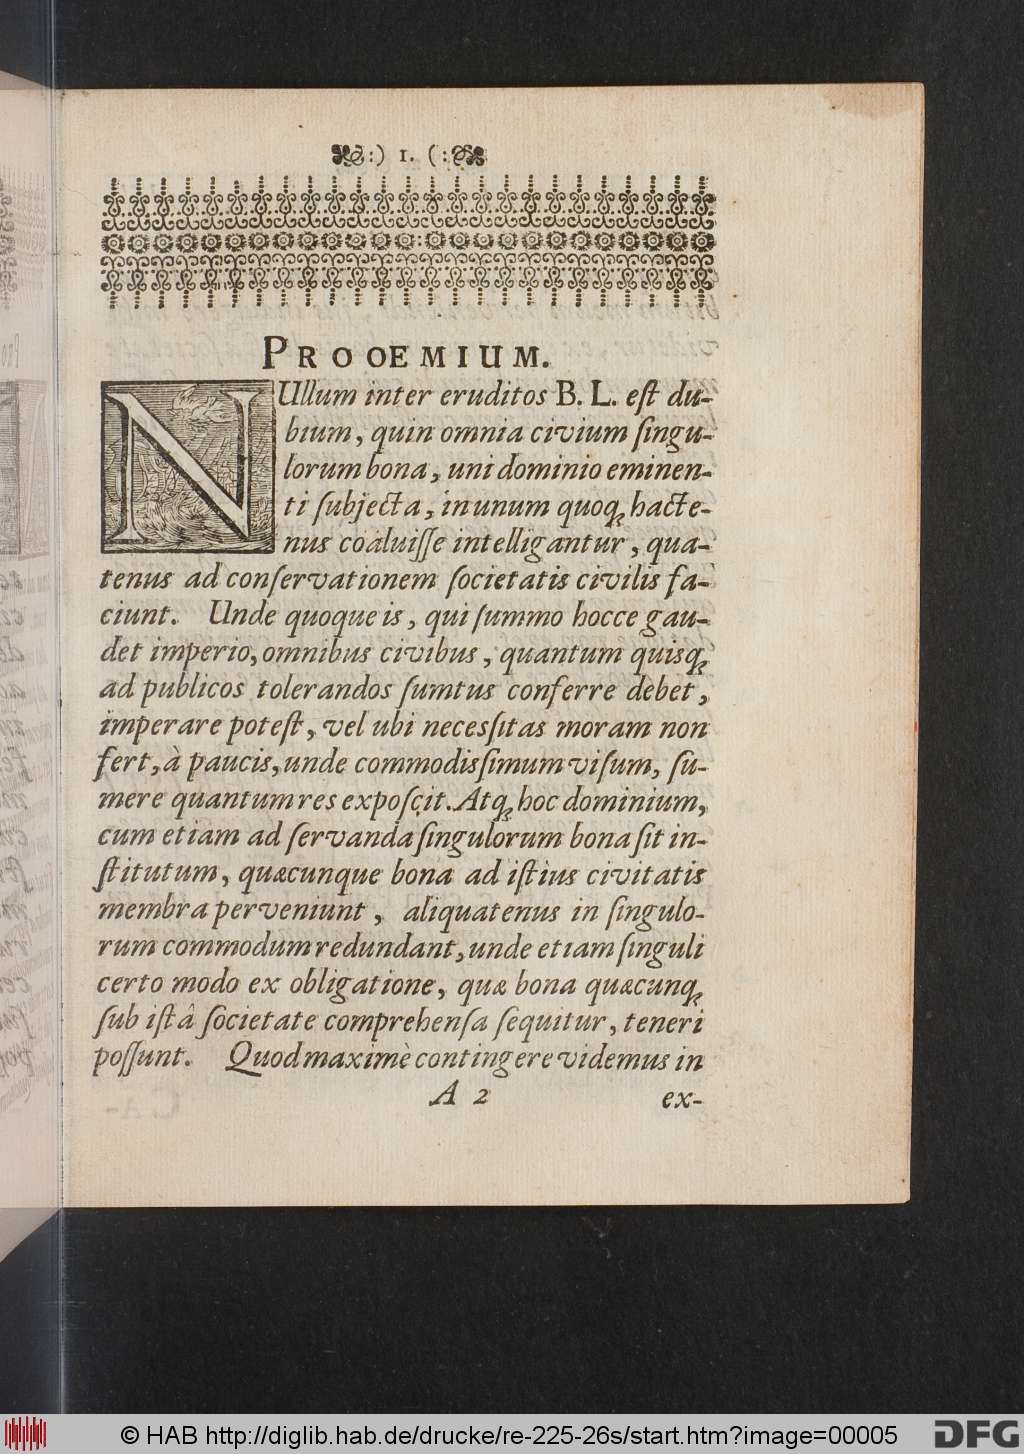 :) 1. (:
PROOEMIUM.
NUllum inter eruditos B. L. eſt du-
bium, quin omnia civium ſingu-
lorum bona, uni dominio eminen-
ti ſubjecta, in unum quoq; hacte-
nus coaluiſſe intelligantur, qua-
tenus ad conſervationem ſocietatis civilis fa-
ciunt. Unde quoque is, qui ſummo hocce gau-
det imperio, omnibus civibus, quantum quisq;
ad publicos tolerandos ſumtus conferre debet,
imperare poteſt, vel ubi neceſſitas moram non
fert, à paucis, unde commodiſſimum viſum, ſu-
mere quantum res expoſcit. Atq; hoc dominium,
cum etiam ad ſervanda ſingulorum bona ſit in-
ſtitutum, quæcunque bona ad iſtius civitatis
membra perveniunt, aliquatenus in ſingulo-
rum commodum redundant, unde etiam ſinguli
certo modo ex obligatione, quæ bona quæcunq;
ſub iſtâ ſocietate comprehenſa ſequitur, teneri
poſſunt. Quod maximè contingere videmus in
A 2 ex-
© HAB http://diglib.hab.de/drucke/re-225-26s/start.htm?image=00005
DFG